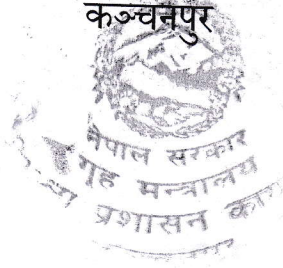 कञ्चनपुर
नेपाल सरकार
गृह मन्त्रालय
प्रशासन